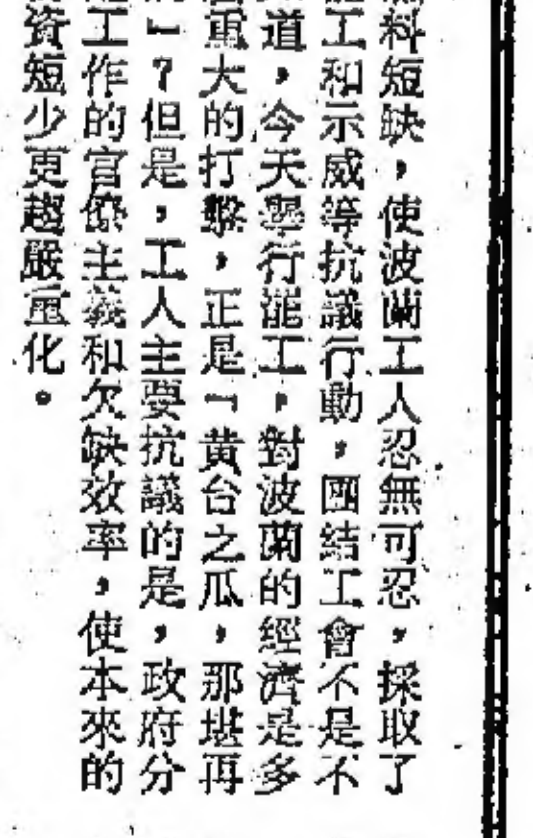 料短缺，使波蘭工人忍無可忍，採取了
工和示威等抗議行動，團結工會不是不
道，今天舉行罷工，對波蘭的經濟是多
重大的打擊，正是「黃台之瓜，那堪再
」？但是，工人主要抗議的是，政府分
工作的官僚主義和欠缺效率，使本來的
資短少更趨嚴重化。